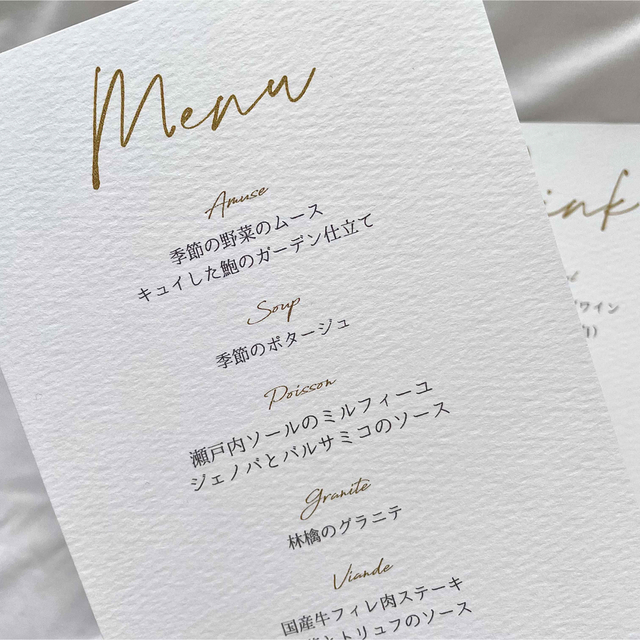 Menu
Amuse
季節の野菜のムース
キュイした鮑のガーデン仕立て
Soup
季節のポタージュ
Poisson
瀬戸内ソールのミルフィーユ
ジェノバとバルサミコのソース
Granite
林檎のグラニテ
Viande
国産牛フィレ肉ステーキ
とトリュフのソース
ink
ワイン